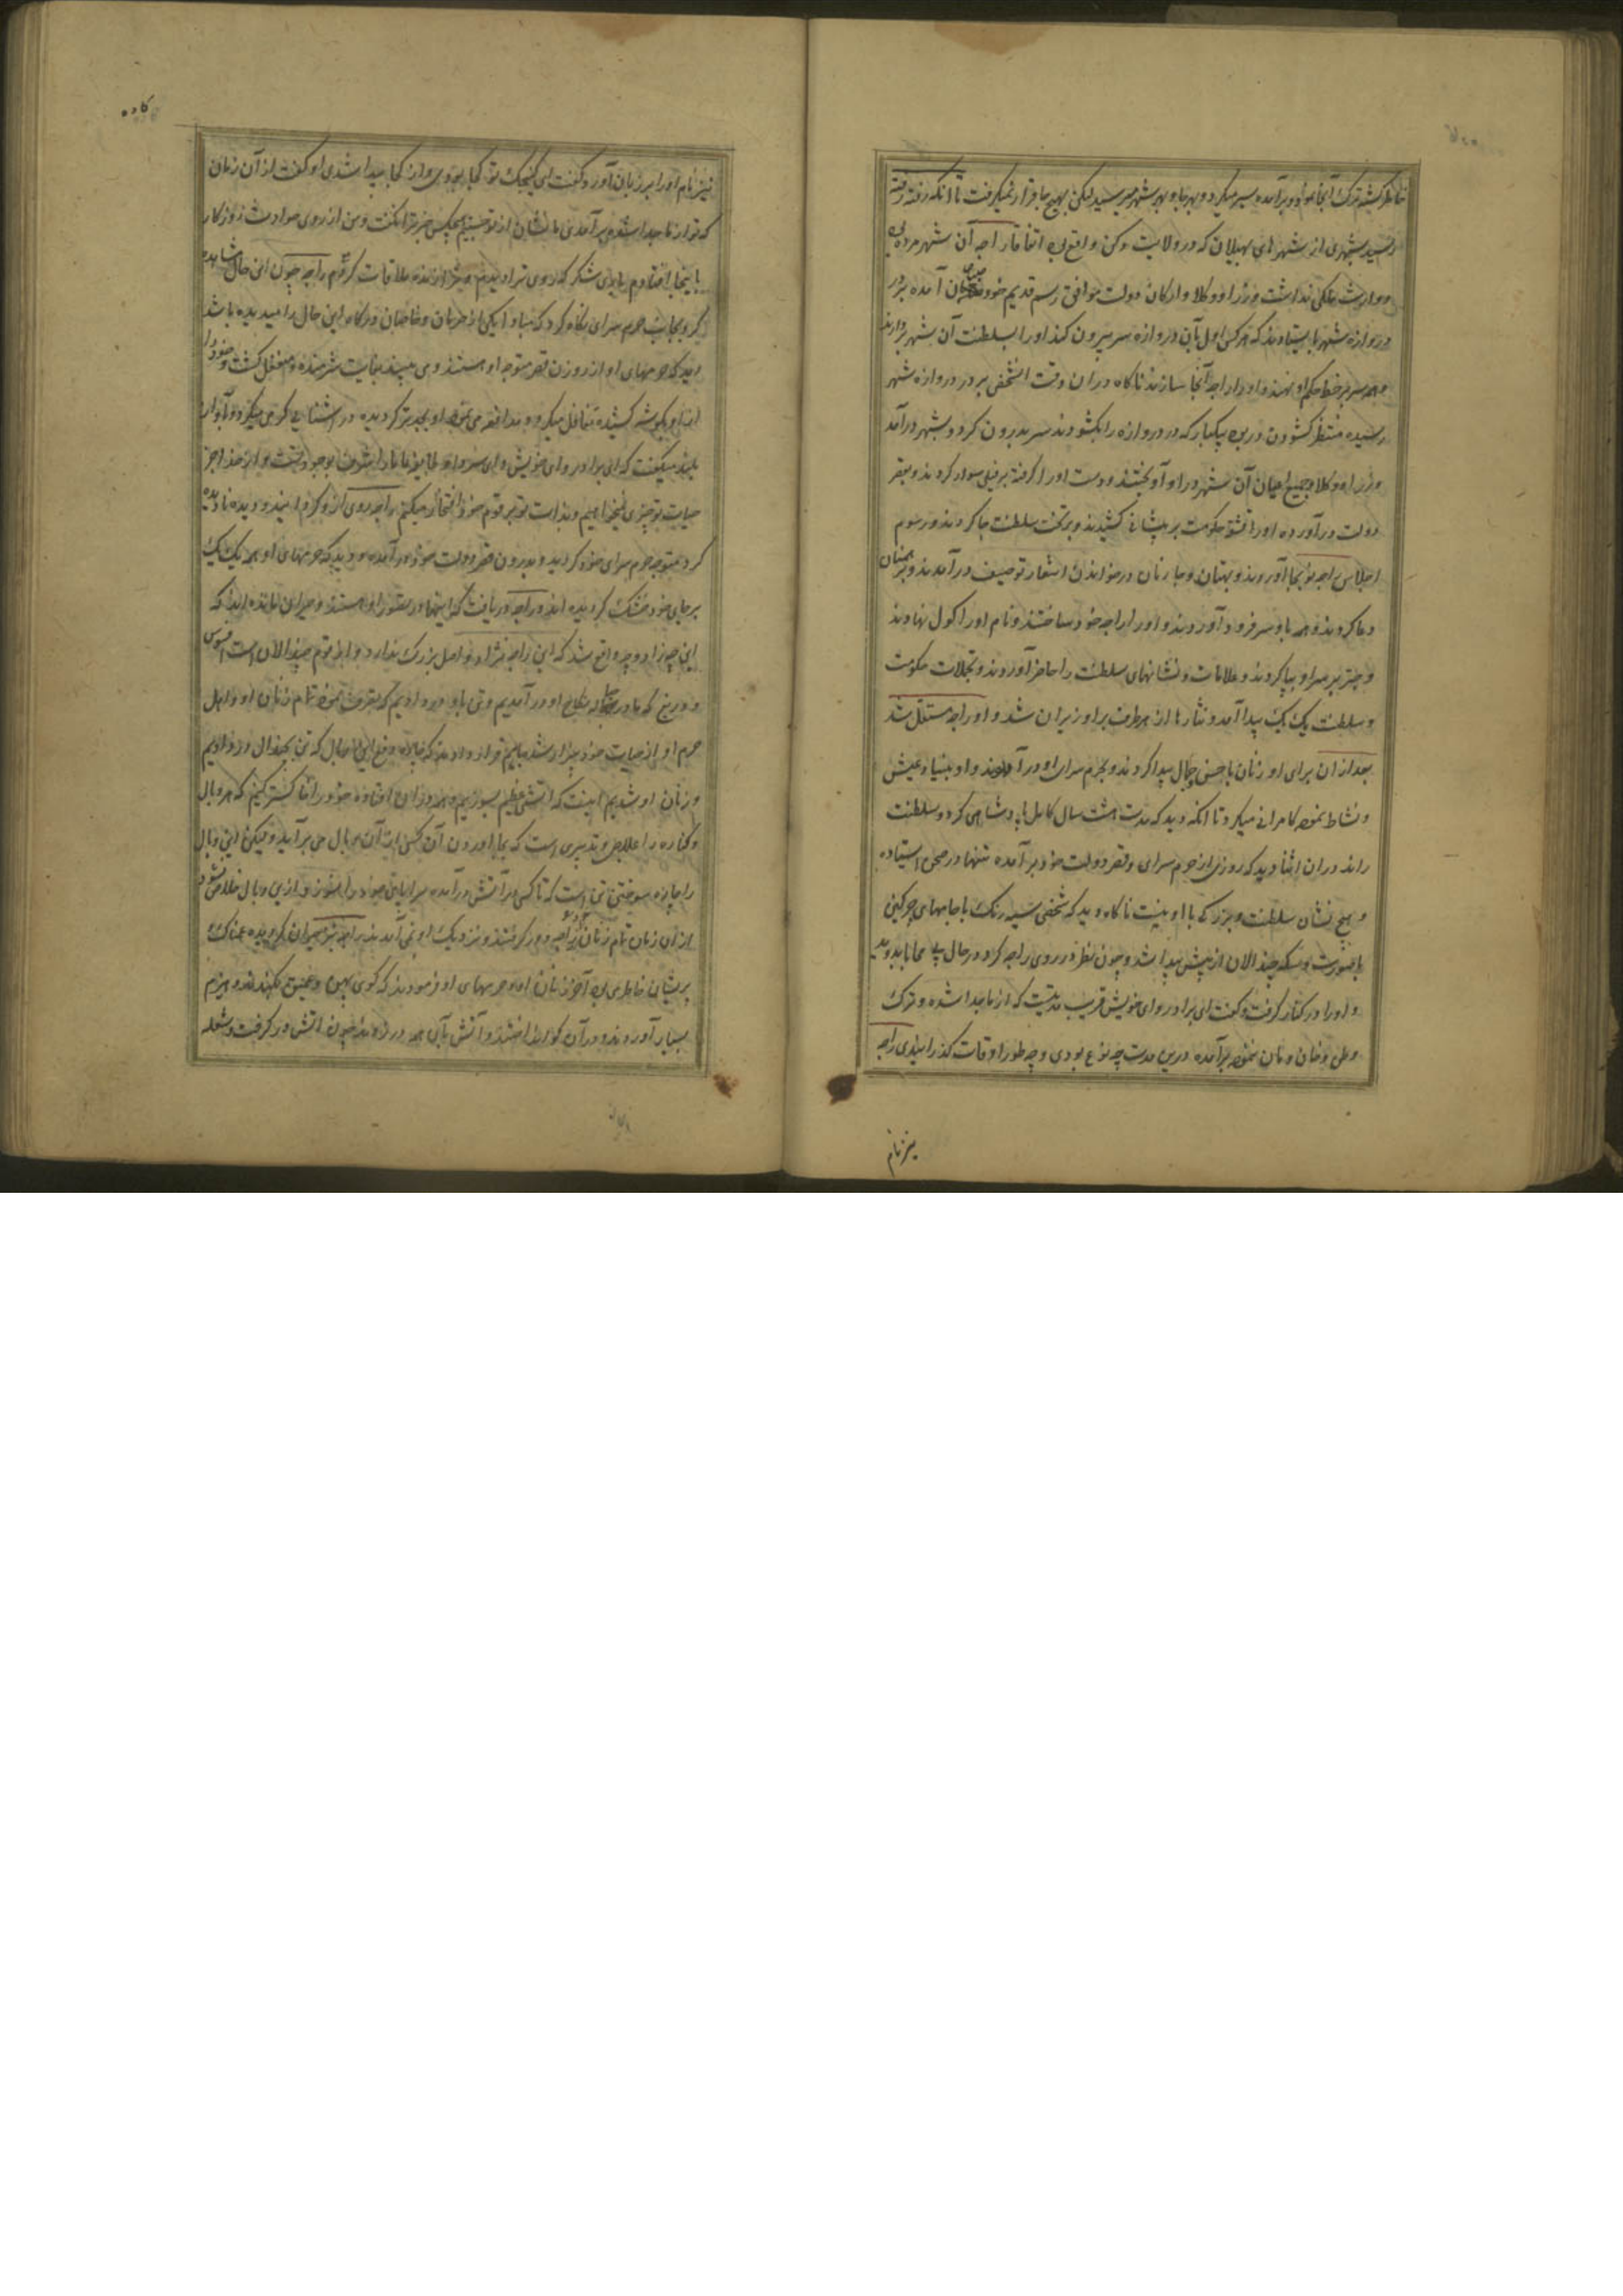 خاطر گشته ترک آنجا داده و برآمده سیر میکرد و بهر جا و بهر شهر میرسید لیکن بهیچ جا قرار نمیگرفت تا آنکه رفته رفته
رسید بشهری از شهرهای بهیلان که در ولایت دکن واقع بود اتفاقا راجه آن شهر مرده بود
و وارث ملکی نداشت وزرا و وکلا و ارکان دولت موافق رسم قدیم خود آمده بر در
دروازه شهر بایستادند که هر کس اول بآن دروازه سر بیرون کند او را بسلطنت آن شهر بردارند
و همه سر بر خط حکم او نهند و او را راجه آنجا سازند ناگاه در آن وقت آن شخص بر در دروازه شهر
رسیده منتظر گشودن در بود یکبار که در دروازه را بگشودند سر بدرون کرد و بشهر درآمد
وزرا و وکلا و جمیع اعیان آن شهر در او آویختند و دست او را گرفته بر فیلی سوار کردند و بقصر
دولت درآورده او را قشقه حکومت بر پیشانی کشیدند و بر تخت سلطنت جا کردند و رسوم
اجلاس راجه بجا آوردند و بهتان و جارنان در خواندن اشعار توصیف درآمدند و برهمنان
دعا کردند و همه باو سر فرود آوردند و او را راجه خود ساختند و نام او را کول نهادند
و چتر بر سر او بپا کردند و علامات و نشانهای سلطنت را حاضر آوردند و تجملات حکومت
و سلطنت یک یک پیدا آمد و نثارها از هر طرف بر او ریزان شد و او راجه مستقل شد
بعد از آن برای او زنان با حسن و جمال پیدا کردند و بحرم سرای او درآوردند و او بنیاد عیش
و نشاط نموده کامرانی میکرد تا آنکه دید که مدت هشت سال کامل پادشاهی کرد و سلطنت
راند در آن اثنا دید که روزی از حرم سرای و قصر دولت خود برآمده تنها در صحن ایستاده
و هیچ نشان سلطنت و بزرگی با او نیست ناگاه دید که شخصی سیه رنگ با جامهای چرکین
بصورت و سکه چندالان از پیش پیدا شد و چون نظر در روی راجه کرد در حال بی محابا بدوید
و او را در کنار گرفت و گفت ای برادر و ای خویش قریب مدتیست که از ما جدا شده و ترک
وطن و خان و مان نموده برآمده درین مدت چه نوع بودی و چه طور اوقات گذرانیدی راجه
نیز نام
نیز نام او را بر زبان آورد و گفت ای کنجک تو کجا بودی و از کجا پیدا شدی او گفت از آن زمان
که تو از ما جدا شده برآمدی ما نشان از تو جستیم هیچکس خبر ترا نگفت و من از روی حوادث روزگار
باینجا افتادم باری شکر که روی ترا دیدم و ترا زنده ملاقات کردم راجه چون این حال مشاهده
کرد بجانب حرم سرای نگاه کرد که مبادا یکی از حرمان و خاصان درگاه این حال را میدیده باشد
دید که حرمهای او از روزن قصر متوجه او هستند و می بینند بغایت شرمنده و منفعل گشت و خود را
از او بگوشه کشیده تغافل میکرد و مدافعه می نمود او بجدتر گردیده در آشنایی گرمی میکرد و بآواز
بلند میگفت که ای برادر و ای خویش
حیات تو چیزی نمیخواهیم و بذات تو بر قوم خود افتخار میکنیم راجه روی از او گردانید و دیده نادیده
کرد متوجه حرم سرای خود گردید و بدرون قصر دولت خود درآمده و دید که حرمهای او همه یک یک
برجای خود خشک گردیده اند و راجه دریافت که اینها در تصور او هستند و حیران مانده اند که
این چه زاد و چه واقع شد که این راجه نژاد و اصل بزرگ ندارد و از قوم چندالان است افسوس
و دریغ که ما در حباله نکاح او درآمدیم و تن باو در دادیم که تصرف نمود تمام زنان او و اهل
حرم او از حیات خود بیزار شدند باهم قرار دادند که چاره دفع این وبال که تن بچندال در دادیم
و زنان او شدیم اینست که آتشی عظیم بسوزیم و همه در آن افتاده خود را خاکستر کنیم که هر وبال
و گناه را علاجی و تدبیری است که بجا آوردن آن کس از آن وبال می برآید و لیکن این وبال
را چاره سوختن تن است که تا کسی در آتش درآمده سراپای خود را نسوزد از این وبال خلاص نشود
از آن زمان تمام زنان از راجه دور گرفتند و نزدیک او نمی آمدند راجه نیز حیران گردیده غمناک
پریشان خاطر می بود آخر زنان او و حرمهای او فرمودند که گوی پهن و عمیق بکندند و هیزم
بسیار آوردند و در آن گو انداختند و آتش بآن همه در زدند چون آتش در گرفت و شعله